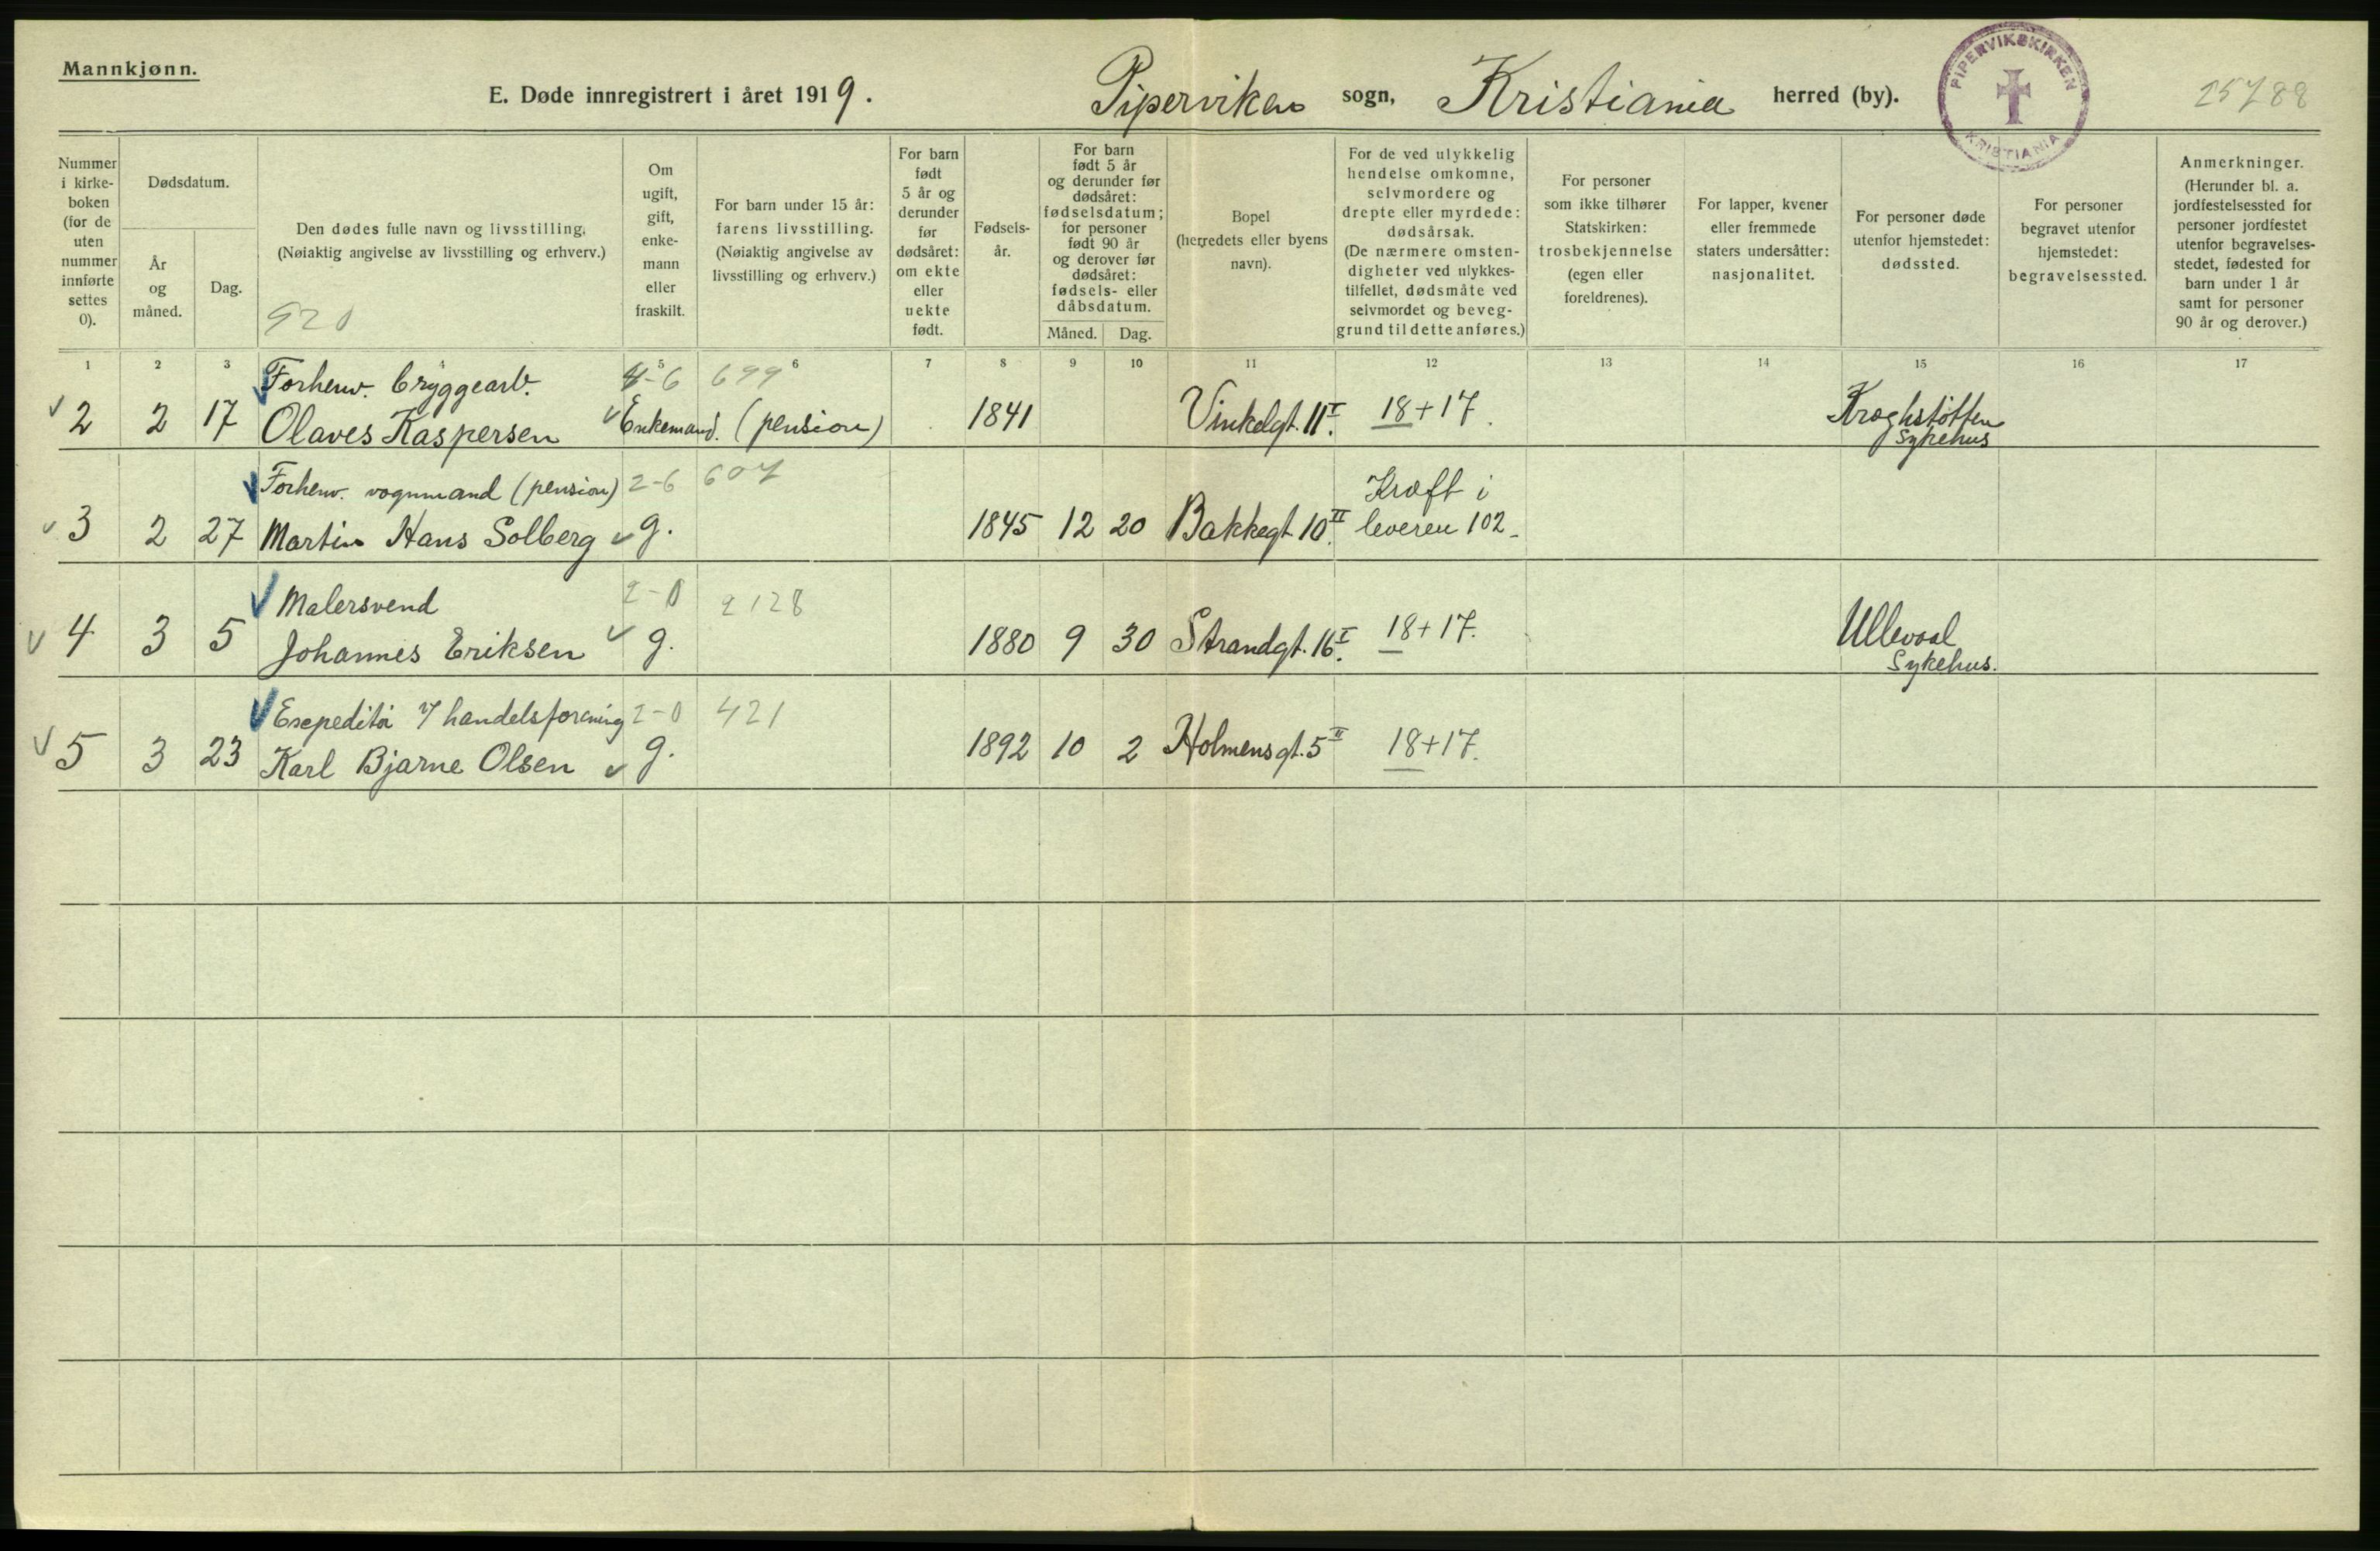 Mannkjønn.
E. Døde innregistrert i året 1919. Piperviken sogn, Kristiania herred (by).
PIPERVIKSKIRKEN KRISTIANIA
25788
Nummer i kirke-boken (for de uten nummer innførte settes 0).
Dødsdatum.
År og måned.
Dag.
Den dødes fulle navn og livsstilling.
(Nøiaktig angivelse av livsstilling og erhverv.)
920
Om ugift, gift, enke-mann eller fraskilt.
For barn under 15 år: farens livsstilling. (Nøiaktig angivelse av livsstilling og erhverv.)
For barn født 5 år og derunder før dødsåret: om ekte eller uekte født.
Fødsels-år.
For barn født 5 år og derunder før dødsåret: fødselsdatum; for personer født 90 år og derover før dødsåret: fødsels- eller dåbsdatum.
Måned. Dag.
Bopel (herredets eller byens navn).
For de ved ulykkelig hendelse omkomne, selvmordere og drepte eller myrdede: dødsårsak. (De nærmere omsten-digheter ved ulykkes-tilfellet, dødsmåte ved selvmordet og beveg-grund til dette anføres.)
For personer som ikke tilhører Statskirken: trosbekjennelse (egen eller foreldrenes).
For lapper, kvener eller fremmede staters undersåtter: nasjonalitet.
For personer døde utenfor hjemstedet: dødssted.
For personer begravet utenfor hjemstedet: begravelsessted.
Anmerkninger. (Herunder bl. a. jordfestelsessted for personer jordfestet utenfor begravelses-stedet, fødested for barn under 1 år samt for personer 90 år og derover.)
1 2 3 5 6 7 8 9 10 11 12 13 14 15 16 17
Forhenv. bryggearb. 4-6 699
2 2 17 Olaves Kaspersen Enkemand. (pension) 1841 Vinkelgt. 11 I. 18+17. Kroghstøtten Sykehus
Forhenv. vognmand (pension) 2-6 607
3 2 27 Martin Hans Solberg g. 1845 12 20 Bakkegt. 10 II. Kræft i leveren 102
Malersvend 2-0 2128
4 3 5 Johannes Eriksen g. 1880 9 30 Strandgt. 16 I. 18+17. Ullevaal Sykehus.
handelsforening 2-0 421
5 3 23 Karl Bjarne Olsen g. 1892 10 2 Holmensgt. 5 II 18+17.